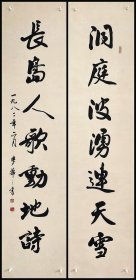 洞庭波湧連天雪
長島人歌動地詩
一九八二年六月